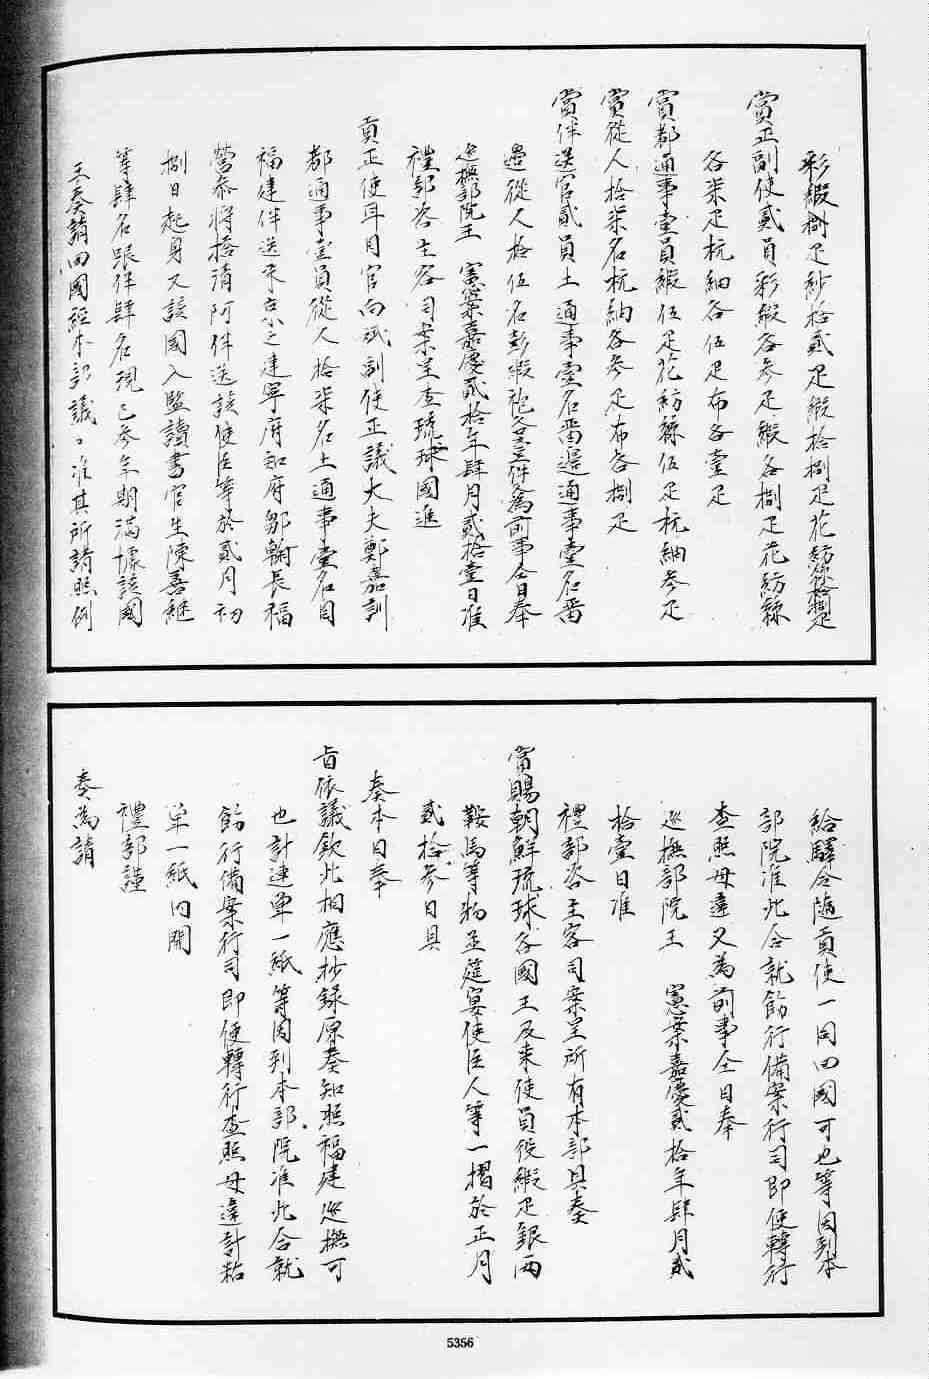 彩緞捌疋紗拾貳疋緞拾捌疋花紡絲拾捌疋
賞正副使貳員彩緞各參疋緞各捌疋花紡絲
各柒疋杭紬各伍疋布各壹疋
賞都通事壹員緞伍疋花紡絲伍疋杭紬參疋
賞從人拾柒名杭紬各參疋布各捌疋
賞伴送官貳員土通事壹名畨邊通事壹名畨
邊從人拾伍名彭緞袍各壹件爲前事仝日奉
巡撫部院王 憲案嘉慶貳拾年肆月貳拾壹日准
禮部咨主客司案呈查琉球國進
貢正使耳目官向斌副使正議大夫鄭嘉訓
都通事壹員從人拾柒名土通事壹名目
福建伴送來京之建寧府知府鄒翰長福
營叅將搭清阿伴送該使臣等於貳月初
捌日起身又該國入監讀書官生陳善繼
等肆名跟伴肆名現已參年期滿據該國
王奏請囬國經本部議准其所請照例
給驛令隨貢使一同囬國可也等因到本
部院准此合就飭行備案行司即便轉行
查照毋違又為前事仝日奉
巡撫部院王 憲案嘉慶貳拾年肆月貳
拾壹日准
禮部咨主客司案呈所有本部具奏
賞賜朝鮮琉球各國王及来使員役緞疋銀両
鞍馬等物並筵宴使臣人等一摺於正月
貳拾參日具
奏本日奉
旨依議欽此相應抄錄原奏知照福建巡撫可
也計連單一紙等因到本部院准此合就
飭行備案行司即便轉行查照毋違計粘
单一紙内開
禮部謹
奏為請
5356